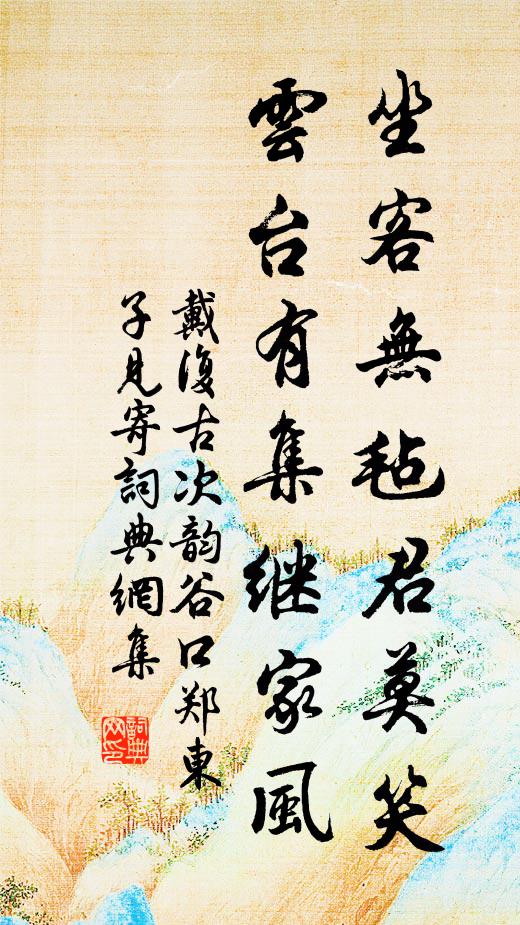 坐客無毡君莫笑
雲台有集继家風
戴復古次韵谷口郑東
子見寄詞典網集
詞典网印